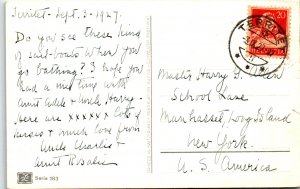 Territet - Sept. 3 - 1927.
Do you see these kind
of sail-boats where you
go bathing? I hope you
had a nice time with
Aunt Adele & Uncle Harry.
Here are xxxxxx lots of
kisses & much love from
Uncle Charlie &
Aunt Rosalie
Serie 183
TERRITET
20
HELVETIA
Master Harry G.
School Lane
Manhasset, Long Island
New York.
U. S. America